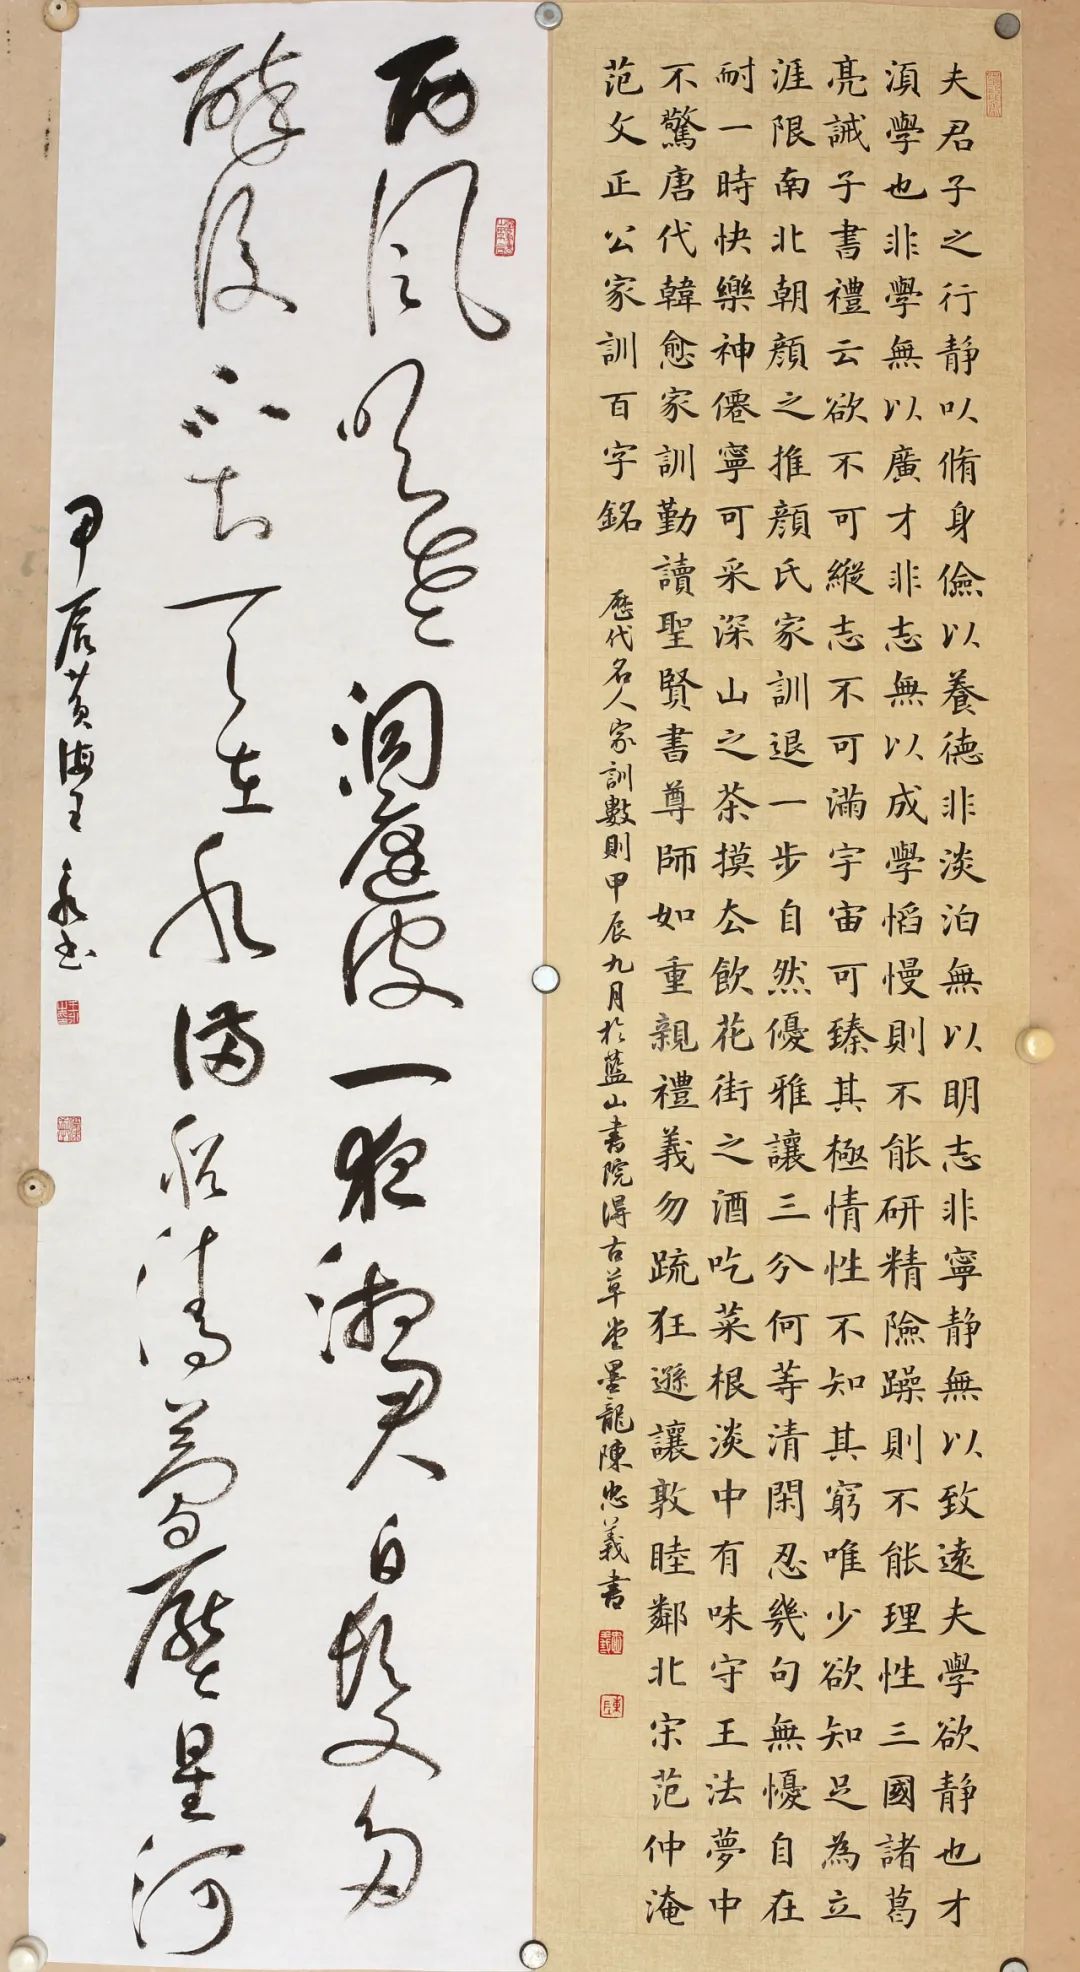 夫君子之行静以脩身儉以養德非淡泊無以明志非寧静無以致遠夫學欲静也才
須學也非學無以廣才非志無以成學慆慢則不能研精險躁則不能理性三國諸葛
亮誡子書禮云欲不可縱志不可滿宇宙可臻其極情性不知其窮唯少欲知足為立
涯限南北朝顔之推顔氏家訓退一步自然優雅讓三分何等清閑忍幾句無憂自在
耐一時快樂神僊寧可采深山之茶摸厺飲花街之酒吃菜根淡中有味守王法夢中
不驚唐代韓愈家訓勤讀聖賢書尊師如重親禮義勿疏狂遜讓敦睦鄰北宋范仲淹
范文正公家訓百字銘
歷代名人家訓數則甲辰九月於藍山書院得古草堂墨龍陳忠義書
西風吹老洞庭波一夜湘君白髮多
醉後不知天在水滿船清夢壓星河
甲辰黄海王永書